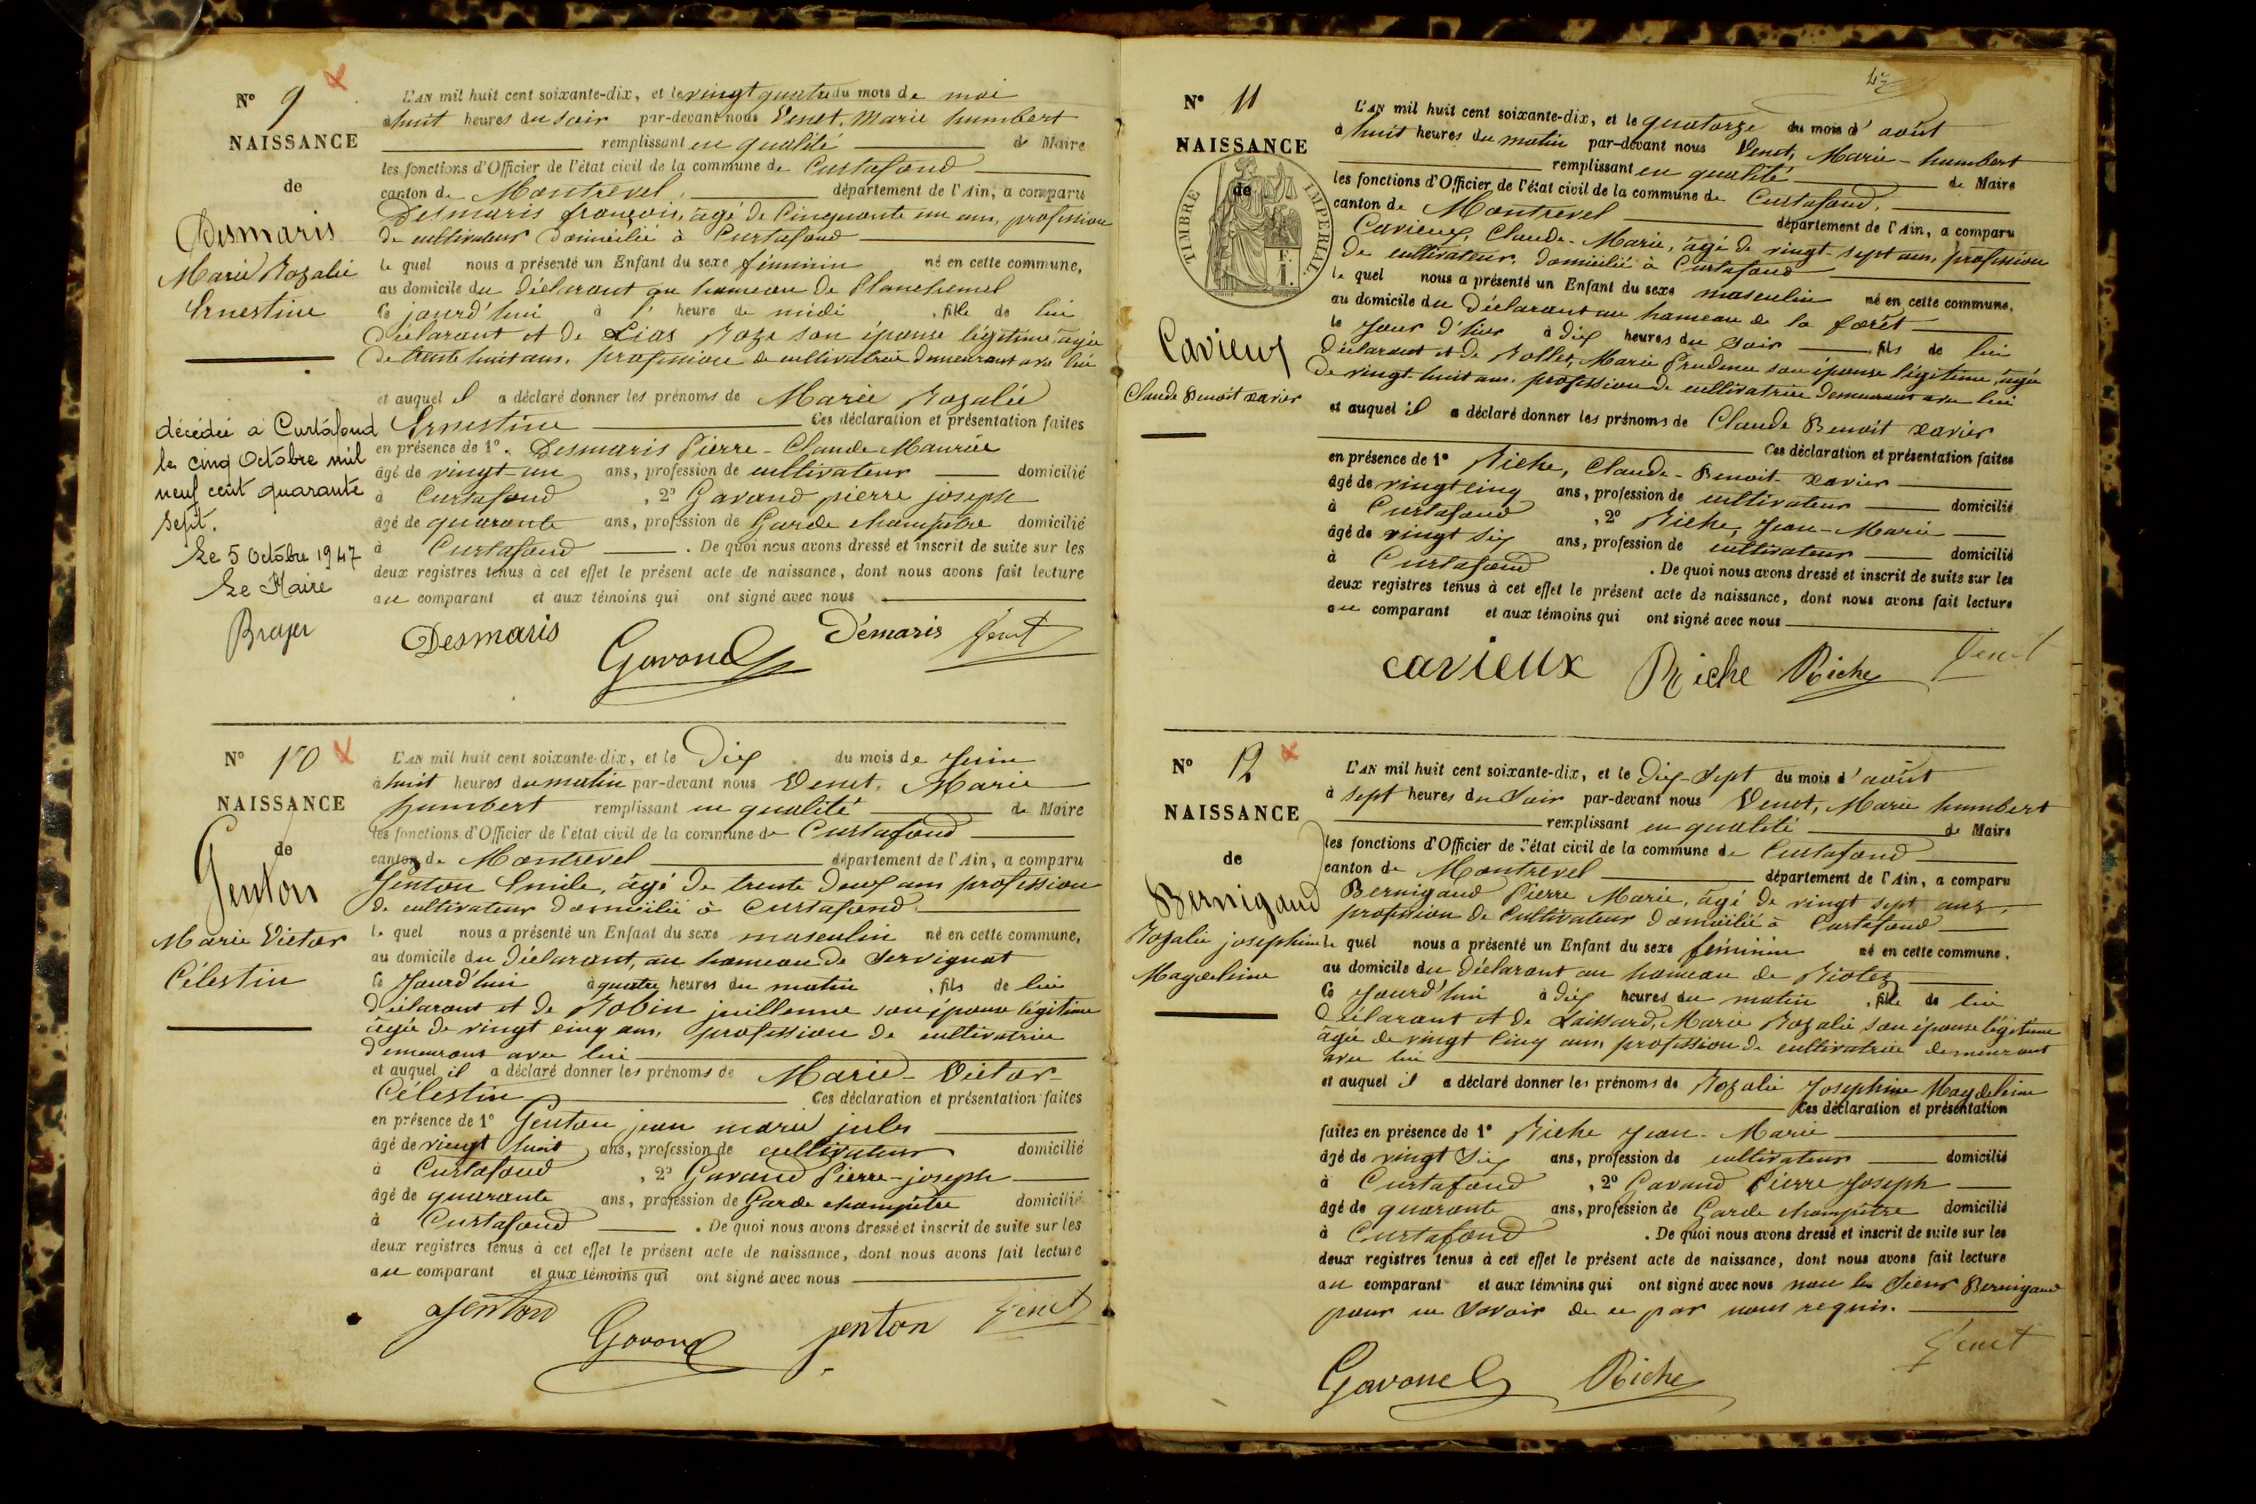 N° 9
NAISSANCE
de
Desmaris
Marie Rozalie
Ernestine
décédée a Curtafond
le cinq Octobre mil
neuf cent quarante
sept.
Le 5 Octobre 1947
Le Maire
Brayer
L'AN mil huit cent soixante-dix, et le vingt quatre du mois de mai
à huit heures du soir par-devant nous Venet, Marie humbert
remplissant en qualité de Maire
les fonctions d'Officier de l'état civil de la commune de Curtafond
canton de Montrevel, département de l'Ain, a comparu
Desmaris françois, âgé de Cinquante un ans, profession
de cultivateur domicilié à Curtafond
le quel nous a présenté un Enfant du sexe féminin né en cette commune,
au domicile du déclarant au hameau de Planchemel
Ce jourd'hui à l' heure de midi , fille de lui
déclarant et de Lias Roze son épouse légitime âgée
de trente huit ans, profession de cultivatrice demeurant avec lui
et auquel il a déclaré donner les prénoms de Marie Rozalie
Ernestine Ces déclaration et présentation faites
en présence de 1°. Desmaris Pierre-Claude Maurice
âgé de vingt-un ans, profession de cultivateur domicilié
à Curtafond , 2° Gavand pierre joseph
âgé de quarante ans, profession de Garde champêtre domicilié
à Curtafond . De quoi nous avons dressé et inscrit de suite sur les
deux registres tenus à cet effet le présent acte de naissance, dont nous avons fait lecture
au comparant et aux témoins qui ont signé avec nous
Desmaris Gavand Démaris Venet
N° 10
NAISSANCE
de
Genton
Marie Victor
Célestin
L'AN mil huit cent soixante-dix, et le Dix du mois de Juin
à huit heures du matin par-devant nous Venet, Marie
humbert remplissant en qualité de Maire
les fonctions d'Officier de l'état civil de la commune de Curtafond
canton de Montrevel département de l'Ain, a comparu
Genton Emile, âgé de trente deux ans profession
de cultivateur domicilié à Curtafond
le quel nous a présenté un Enfant du sexe masculin né en cette commune,
au domicile du déclarant, au hameau de Servignat
Ce Jourd'hui à quatre heures du matin , fils de lui
déclarant et de Robin juillenne son épouse légitime
âgée de vingt cinq ans, profession de cultivatrice
demeurant avec lui
et auquel il a déclaré donner les prénoms de Marie-Victor-
Célestin Ces déclaration et présentation faites
en présence de 1° Genton jean marie jules
âgé de viengt huit ans, profession de cultivateur domicilié
à Curtafond , 2° Gavand Pierre-joseph
âgé de quarante ans, profession de Garde champêtre domicilié
à Curtafond . De quoi nous avons dressé et inscrit de suite sur les
deux registres tenus à cet effet le présent acte de naissance, dont nous avons fait lecture
au comparant et aux témoins qui ont signé avec nous
Genton Gavand genton Venet
N° 11
NAISSANCE
de
TIMBRE IMPERIAL
F.
1.
Cavieux
Claude Benoit xavier
L'AN mil huit cent soixante-dix, et le quatorze du mois d'août
à huit heures du matin par-devant nous Venet, Marie-humbert
remplissant en qualité de Maire
les fonctions d'Officier de l'état civil de la commune de Curtafond,
canton de Montrevel département de l'Ain, a comparu
Cavieux, Claude-Marie, âgé de vingt-sept ans, profession
de cultivateur, domicilié à Curtafond
le quel nous a présenté un Enfant du sexe masculin né en cette commune,
au domicile du Déclarant au hameau de la forêt
le Jour d'hier à dix heures du soir , fils de lui
déclarant et de Rollet, Marie Prudence son épouse légitime, âgée
De vingt-huit ans, profession de cultivatrice demeurant avec lui
et auquel il a déclaré donner les prénoms de Claude Benoit xavier
Ces déclaration et présentation faites
en présence de 1° Riche, Claude-Benoit-xavier
âgé de vingt cinq ans, profession de cultivateur domicilié
à Curtafond , 2° Riche, Jean-Marie
âgé de vingt Six ans, profession de cultivateur domicilié
à Curtafond . De quoi nous avons dressé et inscrit de suite sur les
deux registres tenus à cet effet le présent acte de naissance, dont nous avons fait lecture
au comparant et aux témoins qui ont signé avec nous
cavieux Riche Riche Venet
N° 12
NAISSANCE
de
Bernigaud
Rozalie josephine
Magdeleine
L'AN mil huit cent soixante-dix, et le Dix-Sept du mois d'août
à sept heures du Soir par-devant nous Venet, Marie humbert
remplissant en qualité de Maire
les fonctions d'Officier de l'état civil de la commune de Curtafond
canton de Montrevel département de l'Ain, a comparu
Bernigaud Pierre Marie, âgé de vingt sept ans,
profession de Cultivateur domicilié à Curtafond
le quel nous a présenté un Enfant du sexe féminin né en cette commune,
au domicile du Déclarant au hameau de Riotez
Ce Jourd'hui à dix heures du matin , fille de lui
déclarant et de Laissard, Marie Rozalie son épouse légitime
âgée de vingt Cinq ans, profession de cultivatrice demeurant
avec lui
et auquel il a déclaré donner les prénoms de Rozalie Josephine Magdeleine
Ces déclaration et présentation
faites en présence de 1° Riche Jean-Marie
âgé de vingt Six ans, profession de cultivateur domicilié
à Curtafond , 2° Gavand Pierre Joseph
âgé de quarante ans, profession de Garde champêtre domicilié
à Curtafond . De quoi nous avons dressé et inscrit de suite sur les
deux registres tenus à cet effet le présent acte de naissance, dont nous avons fait lecture
au comparant et aux témoins qui ont signé avec nous non le Sieur Bernigaud
pour ne Savoir de ce par nous requis.
Gavand Riche Venet